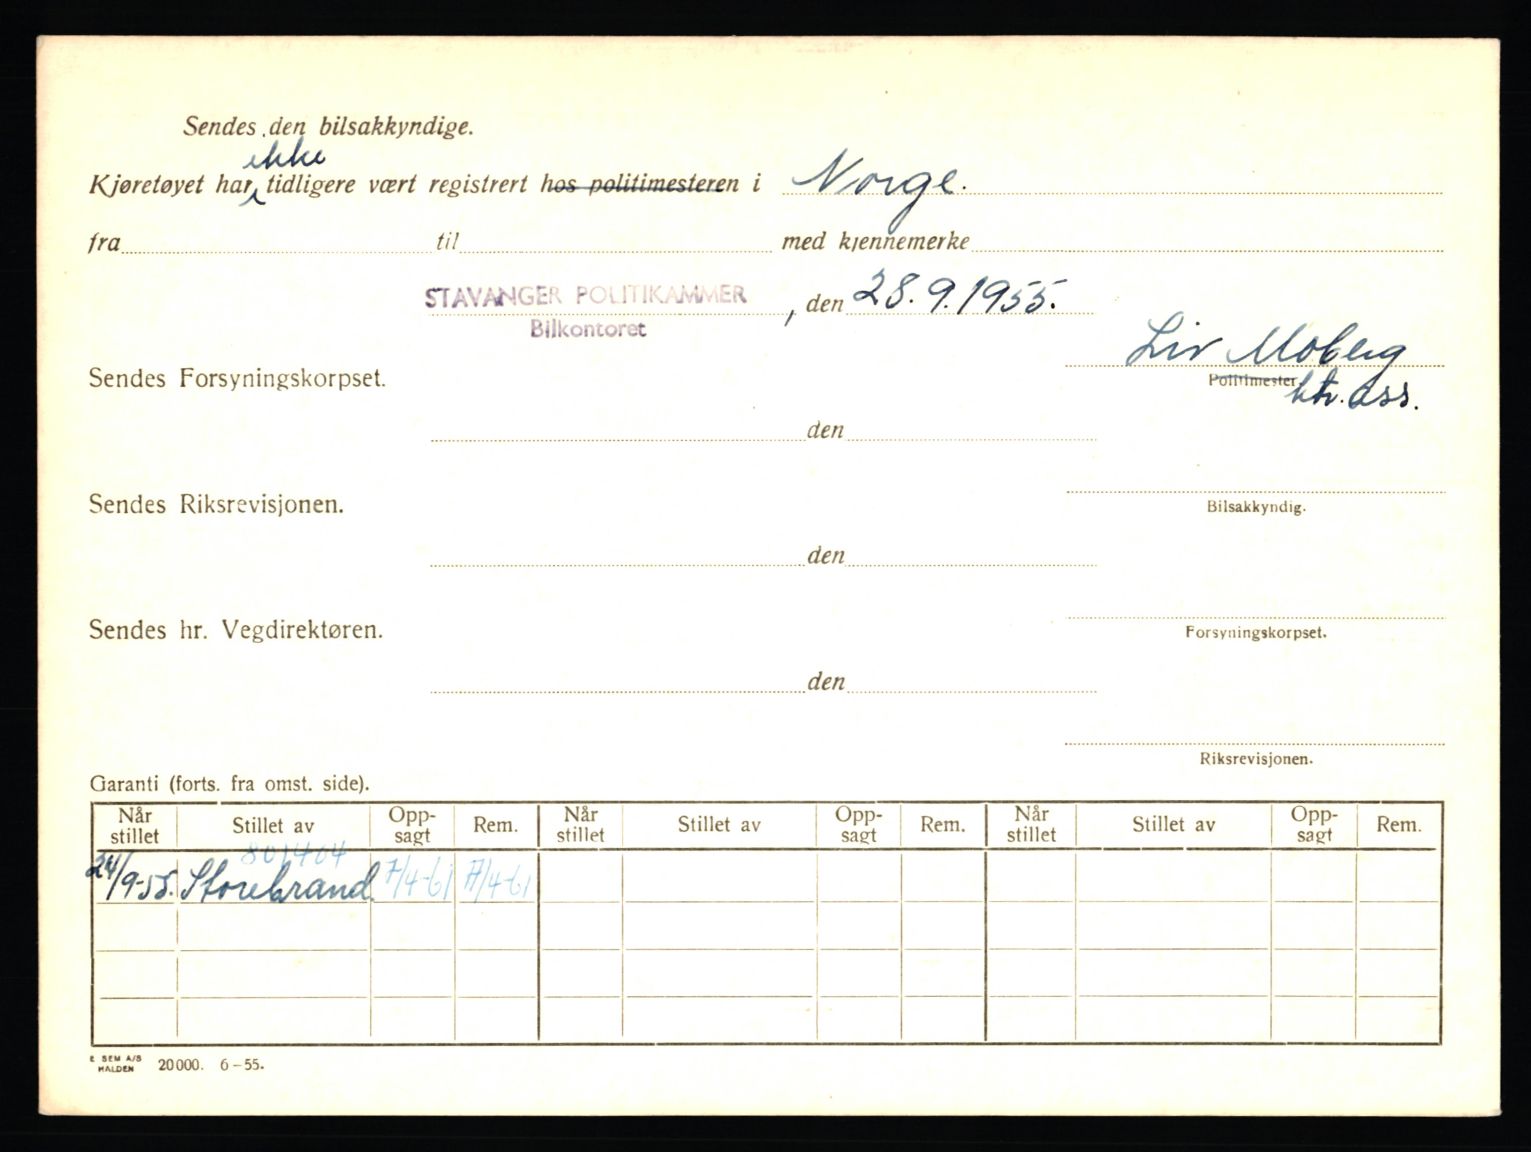 Sendes den bilsakkyndige.
ikke
Kjøretøyet har tidligere vært registrert hos politimesteren i Norge.
fra til med kjennemerke
STAVANGER POLITIKAMMER , den 28.9.1955.
Bilkontoret
Liv Moberg
Sendes Forsyningskorpset. Politimester ktr. ass.
den
Sendes Riksrevisjonen. Bilsakkyndig.
den
Sendes hr. Vegdirektøren. Forsyningskorpset.
den
Riksrevisjonen.
Garanti (forts. fra omst. side).
Når stillet Stillet av Opp-sagt Rem. Når stillet Stillet av Opp-sagt Rem. Når stillet Stillet av Opp-sagt Rem.
801404
24/9-55. Storebrand 7/4-61 7/4-61
E SEM A/S
HALDEN 20000. 6-55.